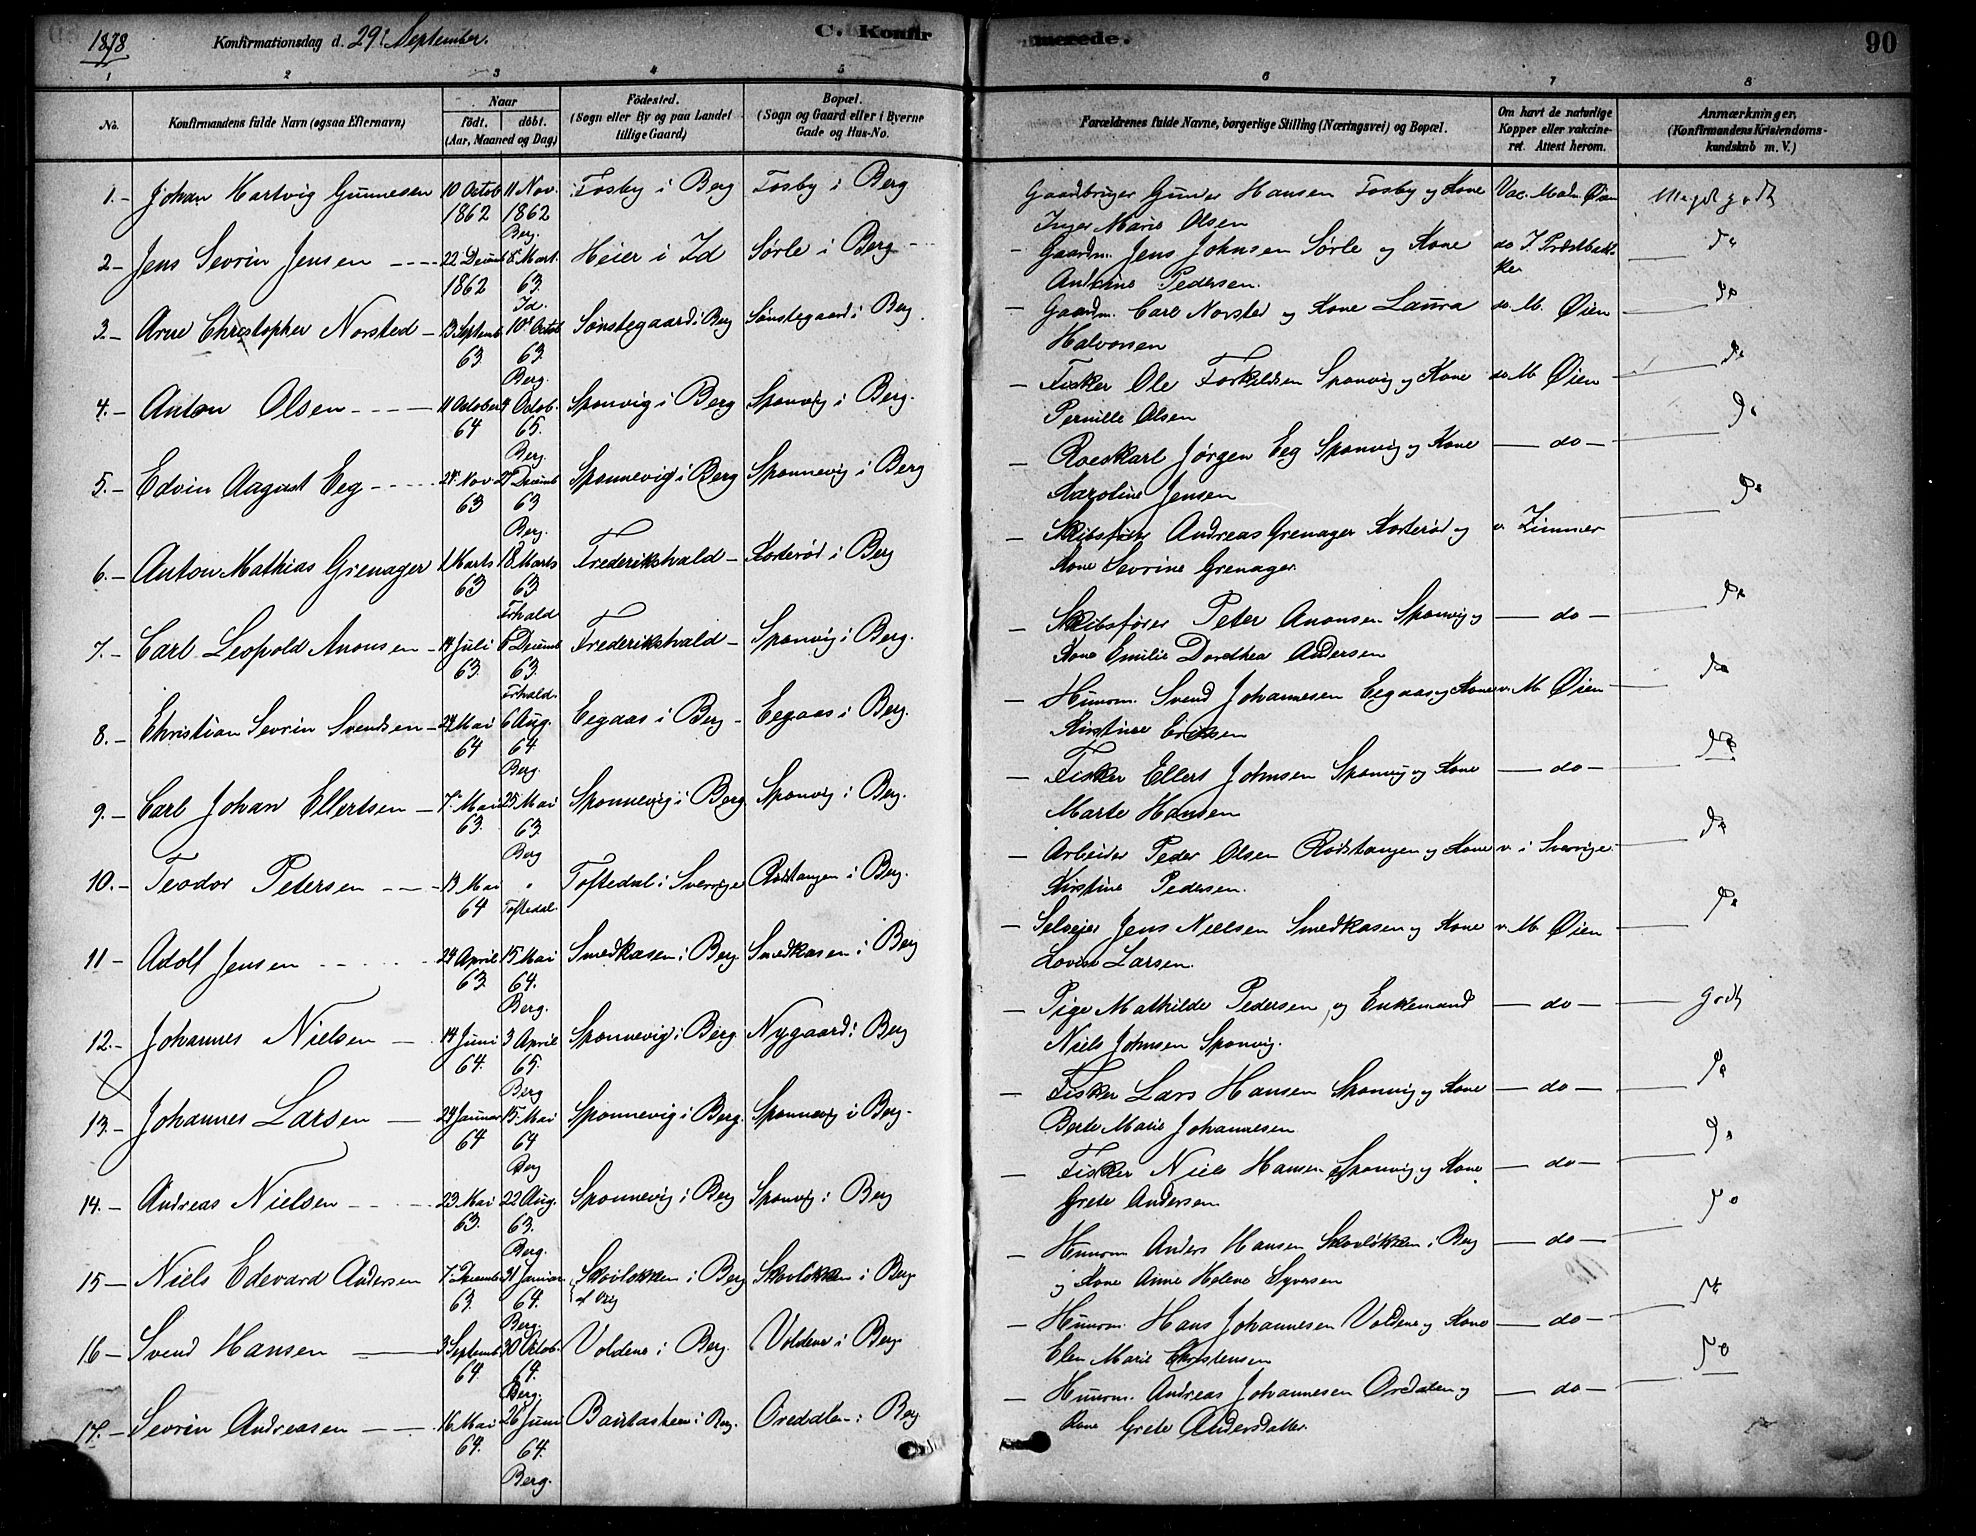 1878 Konfirmationsdag d. 29. September. C. Konfirmerede. 90
1 2 3 4 5 6 7 8
No. Konfirmandens fulde Navn (ogsaa Efternavn)
Naar
født. døbt.
(Aar, Maaned og Dag)
Fødested.
(Sogn eller By og paa Landet tillige Gaard)
Bopæl.
(Sogn og Gaard eller i Byerne Gade og Hus-No.
Forældrenes fulde Navne, borgerlige Stilling (Næringsvei) og Bopæl.
Om havt de naturlige Kopper eller vakcineret. Attest herom.
Anmærkninger,
(Konfirmandens Kristendomskundskab m. V.)
1.- Johan Hartvig Gunnesen 10 Octob 11 Nov. Tosby i Berg Tosby i Berg Gaardbruger Gunder Hansen Tosby og Kone Vac. Mdm. Øien Meget godt
1862 1862 Berg. Inger Marie Olsen
2- Jens Sevrin Jensen 22 Decemb 8 Mart. Heier i Id Sørle i Berg - Gaardm. Jens Johnsen Sørle og Kone do J. Præstbakke do
1862 63. Id. Andrine Pedersen.
3.- Arne Christopher Norsted - 13 Septemb 10 Octob Sønstegaard i Berg Sønstegaard i Berg. - Gaardm. Carl Norsted og Kone Laura do M. Øien do
63 63. Berg. Halvorsen
4.- Anton Olsen 11 October 9 Octob. Sponvig i Berg Sponvig i Berg. - Fisker Ole Torkildsen Sponvig og Kone do M Øien do
64 65. Berg. Pernille Olsen
5.- Edvin August Eeg 24 Nov 27 Decemb Sponnevig i Berg Sponnevig i Berg - Roeskarl Jørgen Eeg Sponvig og Kone - do - do
63 63 Berg. Karoline Jensen
6.- Anton Mathias Grenager 1 Marts 18 Marts Frederikshald - Korterød i Berg - Skibsfører Andreas Grenager Korterød og v. Zimmer do
63 63. Frhald Kone Sevrine Grenager.
7.- Carl Leopold Anonsen - 14 Juli 6 Decemb Frederikshald - Sponvig i Berg. - Skibsfører Peter Anonsen Sponvig og - do - do
63. 63. Frhald. Kone Emilie Dorthea Andersen
8.- Christian Sevrin Svendsen - 24 Mai 6 Aug. Eegaas i Berg - Eegaas i Berg. - Huusm. Svend Johannesen Eegaas og Kone v. M. Øien do
64 64 Berg. Kirstine Eriksen
9.- Carl Johan Ellertsen - 7 Mai 25 Mai Sponnevig i Berg Sponvig i Berg. - Fisker Ellert Johnsen Sponvig og Kone - do - do
63. 63. Berg Marte Hansen
10.- Teodor Petersen 13 Mai " Toftedal i Sverrige Rødstangen i Berg. - Arbeider Peder Olsen Rødstangen og Kone v. i Sverrige do
64 Toftedal. Kirstine Pedersen.
11 - Adolf Jensen 24 April 15 Mai Smedkasen i Berg Smedkasen i Berg - Selveier Jens Nielsen Smedkasen og Kone v. M. Øien do
63 64. Berg. Lovise Larsen.
12.- Johannes Nielsen - 14 Juni 3 April Sponnevig i Berg. Nygaard i Berg - Pige Mathilde Pedersen og Enkemand - do - godt
64. 65. Berg Niels Johnsen Sponvig.
13.- Johannes Larsen - 24 Januar 15 Mai Sponnevig i Berg. Sponnevig i Berg. - Fisker Lars Hansen Sponvig og Kone - do - do
64 64 Berg Berte Marie Johannesen
14.- Andreas Nielsen 23 Mai 22 Aug. Sponnevig i Berg Sponvig i Berg - Fisker Niels Hansen Sponvig og Kone - do - do
63. 63. Berg. Grete Andersen
15 - Niels Edevard Andersen 7 Decemb 31 Januar Skovløkken i Berg Skovløkken i Berg - Huusm Anders Hansen Skovløkken i Berg - do - do
63. 64. Berg. og Kone Anne Helene Syversen
16 - Svend Hansen 3 Septemb 30 Octob. Voldene i Berg. Voldene i Berg. - Huusm. Hans Johannesen Voldene og Kone - do - do
64 64. Berg. Elen Marie Christensen
17.- Sevrin Andreasen 16 Mai 26 Juni Bautasteen i Berg. Oreddlen i Berg - Huusm. Andreas Johannesen Ordalen og - do - do
64. 64. Berg. Kone Grete Andersdatter.